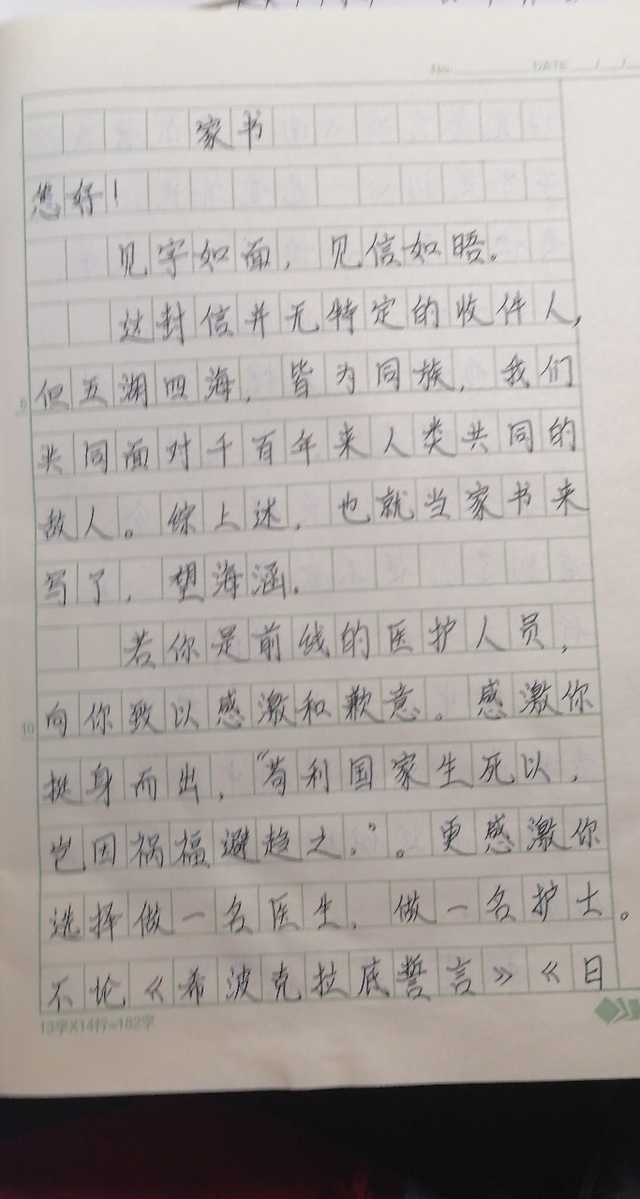 No. DATE / /
家书
您好！
见字如面，见信如晤。
这封信并无特定的收件人，
但五湖四海，皆为同族，我们
共同面对千百年来人类共同的
敌人。综上述，也就当家书来
写了，望海涵。
若你是前线的医护人员，
向你致以感激和歉意。感激你
挺身而出，“苟利国家生死以，
岂因祸福避趋之。”。更感激你
选择做一名医生，做一名护士。
不论《希波克拉底誓言》《日
13字X14行=182字